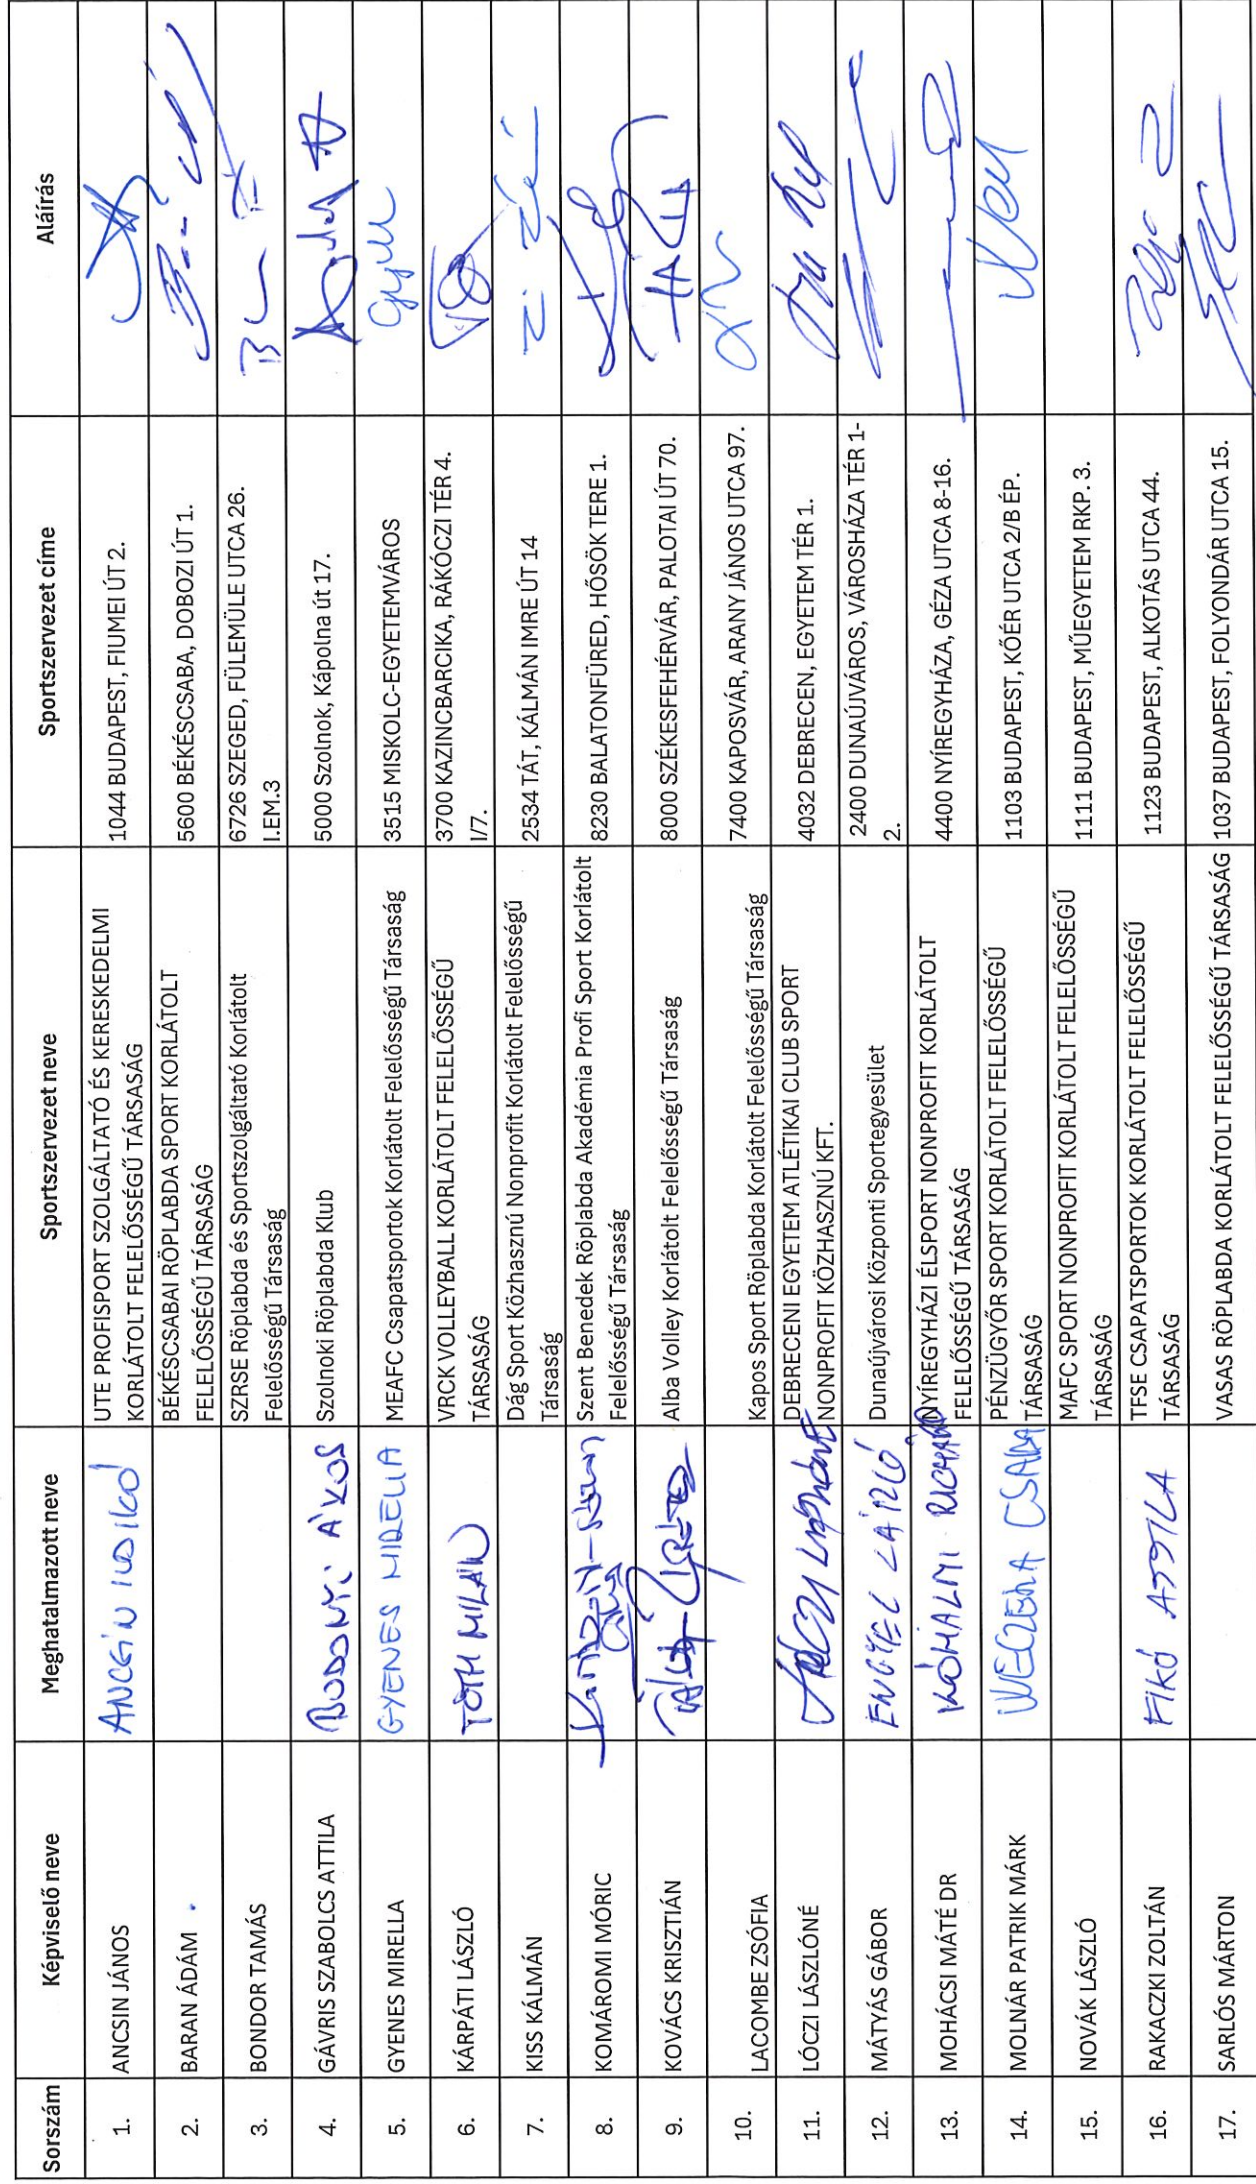 Sorszám Képviselő neve Meghatalmazott neve Sportszervezet neve Sportszervezet címe Aláírás
1. ANCSIN JÁNOS ANCSIN ILDIKÓ UTE PROFISPORT SZOLGÁLTATÓ ÉS KERESKEDELMI 1044 BUDAPEST, FIUMEI ÚT 2.
KORLÁTOLT FELELŐSSÉGŰ TÁRSASÁG
2. BARAN ÁDÁM BÉKÉSCSABAI RÖPLABDA SPORT KORLÁTOLT 5600 BÉKÉSCSABA, DOBOZI ÚT 1.
FELELŐSSÉGŰ TÁRSASÁG
3. BONDOR TAMÁS SZRSE Röplabda és Sportszolgáltató Korlátolt 6726 SZEGED, FÜLEMÜLE UTCA 26.
Felelősségű Társaság I.EM.3
4. GÁVRIS SZABOLCS ATTILA BODONYI ÁKOS Szolnoki Röplabda Klub 5000 Szolnok, Kápolna út 17.
5. GYENES MIRELLA GYENES MIRELLA MEAFC Csapatsportok Korlátolt Felelősségű Társaság 3515 MISKOLC-EGYETEMVÁROS
6. KÁRPÁTI LÁSZLÓ TÓTH MILÁN VRCK VOLLEYBALL KORLÁTOLT FELELŐSSÉGŰ 3700 KAZINCBARCIKA, RÁKÓCZI TÉR 4.
TÁRSASÁG I/7.
7. KISS KÁLMÁN Dág Sport Közhasznú Nonprofit Korlátolt Felelősségű 2534 TÁT, KÁLMÁN IMRE ÚT 14
Társaság
8. KOMÁROMI MÓRIC Szent Benedek Röplabda Akadémia Profi Sport Korlátolt 8230 BALATONFÜRED, HŐSÖK TERE 1.
Felelősségű Társaság
9. KOVÁCS KRISZTIÁN Alba Volley Korlátolt Felelősségű Társaság 8000 SZÉKESFEHÉRVÁR, PALOTAI ÚT 70.
10. LACOMBE ZSÓFIA Kapos Sport Röplabda Korlátolt Felelősségű Társaság 7400 KAPOSVÁR, ARANY JÁNOS UTCA 97.
11. LÓCZI LÁSZLÓNÉ LÓCZI LÁSZLÓNÉ DEBRECENI EGYETEM ATLÉTIKAI CLUB SPORT 4032 DEBRECEN, EGYETEM TÉR 1.
NONPROFIT KÖZHASZNÚ KFT.
12. MÁTYÁS GÁBOR ENGYEL LÁSZLÓ Dunaújvárosi Központi Sportegyesület 2400 DUNAÚJVÁROS, VÁROSHÁZA TÉR 1-
2.
13. MOHÁCSI MÁTÉ DR KŐHALMI RICHÁRD NYÍREGYHÁZI ÉLSPORT NONPROFIT KORLÁTOLT 4400 NYÍREGYHÁZA, GÉZA UTCA 8-16.
FELELŐSSÉGŰ TÁRSASÁG
14. MOLNÁR PATRIK MÁRK CSABA PÉNZÜGYŐR SPORT KORLÁTOLT FELELŐSSÉGŰ 1103 BUDAPEST, KŐÉR UTCA 2/B ÉP.
TÁRSASÁG
15. NOVÁK LÁSZLÓ MAFC SPORT NONPROFIT KORLÁTOLT FELELŐSSÉGŰ 1111 BUDAPEST, MŰEGYETEM RKP. 3.
TÁRSASÁG
16. RAKACZKI ZOLTÁN FIKÓ ATTILA TFSE CSAPATSPORTOK KORLÁTOLT FELELŐSSÉGŰ 1123 BUDAPEST, ALKOTÁS UTCA 44.
TÁRSASÁG
17. SARLÓS MÁRTON VASAS RÖPLABDA KORLÁTOLT FELELŐSSÉGŰ TÁRSASÁG 1037 BUDAPEST, FOLYONDÁR UTCA 15.